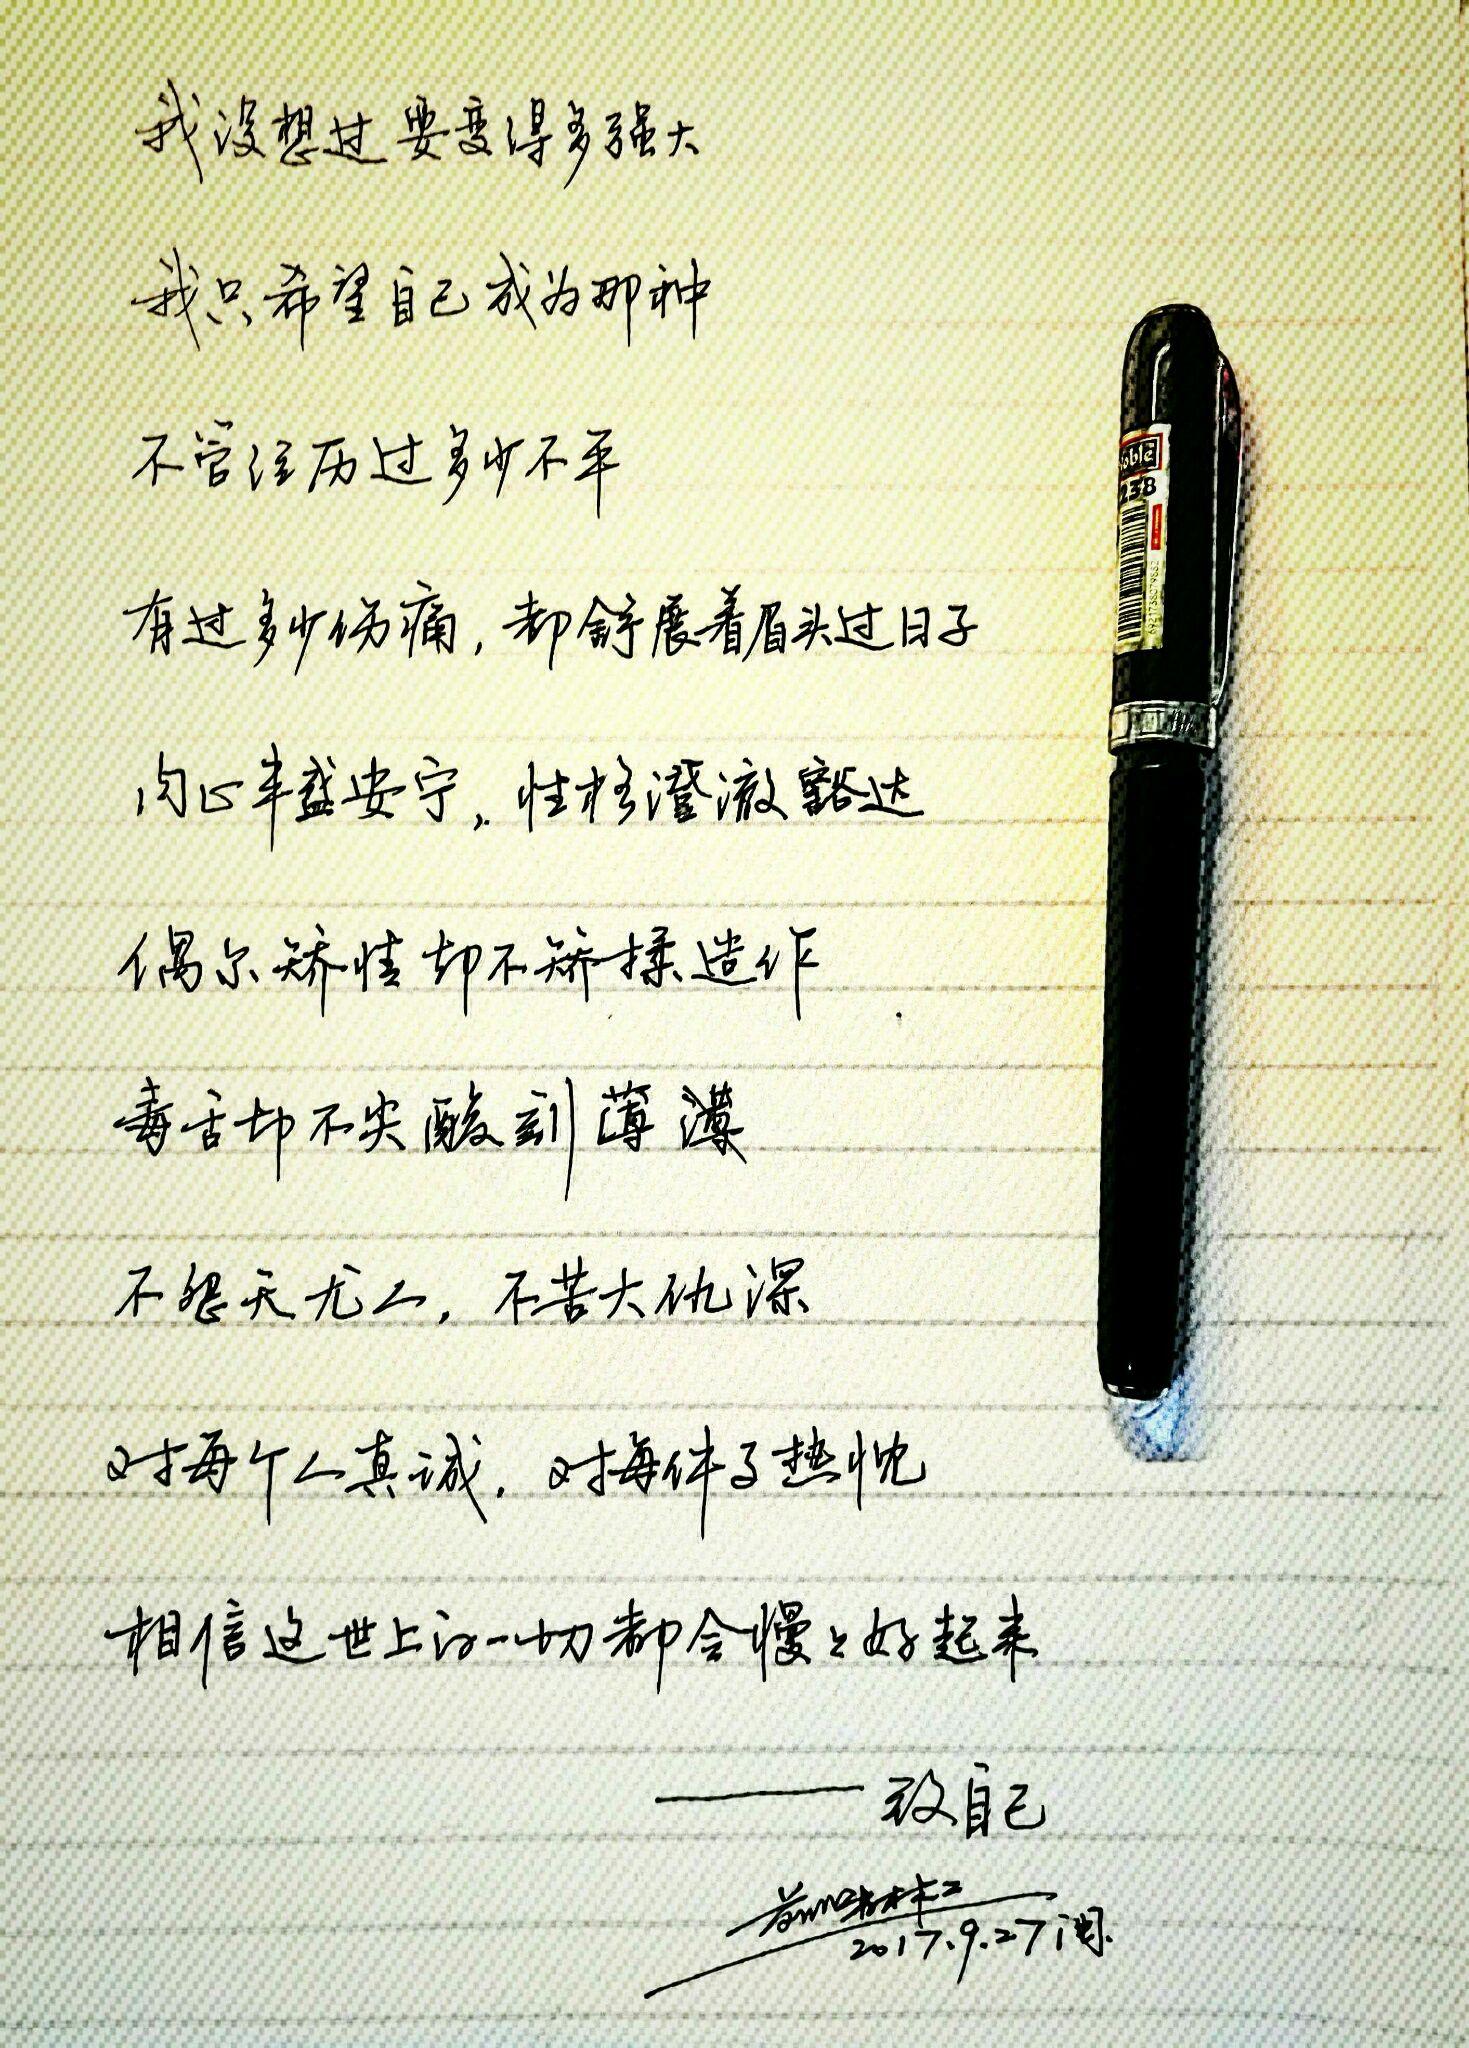 我没想过要变得多强大
我只希望自己成为那种
不管经历过多少不平
有过多少伤痛，都舒展着眉头过日子
内心丰盛安宁，性格澄澈豁达
偶尔矫情却不矫揉造作
毒舌却不尖酸刻薄
不怨天尤人，不苦大仇深
对每个人真诚，对每件事热忱
相信这世上的一切都会慢々好起来
——致自己
2017.9.27
oble
238
6921738079882